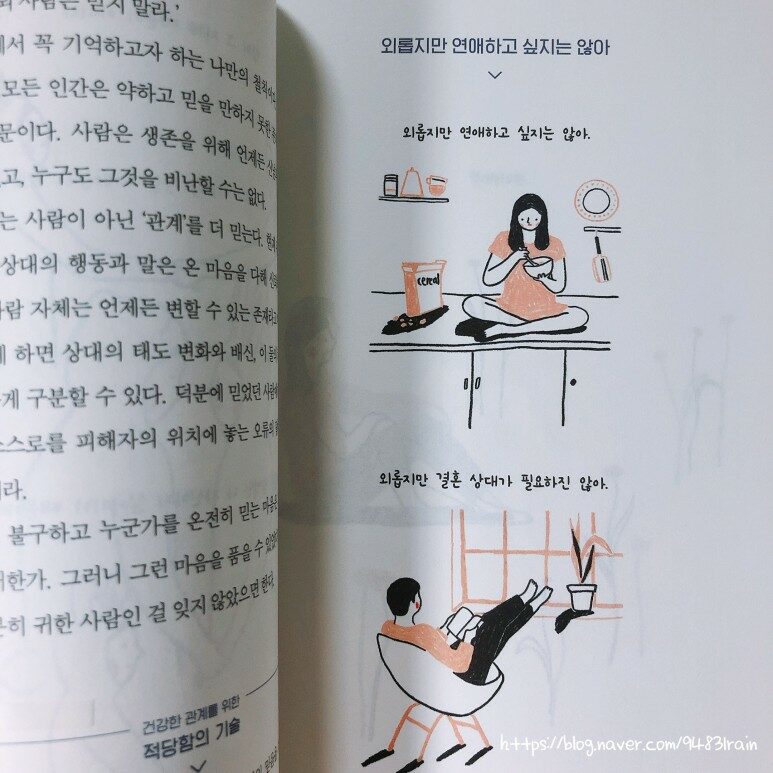 사람은 믿지 말라.'
에서 꼭 기억하고자 하는 나만의 철칙이다.
모든 인간은 약하고 믿을 만하지 못한
문이다. 사람은 생존을 위해 언제든
고, 누구도 그것을 비난할 수는 없다.
는 사람이 아닌 '관계'를 더 믿는다.
상대의 행동과 말은 온 마음을 다해
사람 자체는 언제든 변할 수 있는 존재라고
게 하면 상대의 태도 변화와 배신, 이 둘
게 구분할 수 있다. 덕분에 믿었던
스스로를 피해자의 위치에 놓는 오류
라.
불구하고 누군가를 온전히 믿는 마음은
귀한가. 그러니 그런 마음을 품을 수
히 귀한 사람인 걸 잊지 않았으면 한다.
건강한 관계를 위한
적당함의 기술
외롭지만 연애하고 싶지는 않아
외롭지만 연애하고 싶지는 않아.
cereal
외롭지만 결혼 상대가 필요하진 않아.
https://blog.naver.com/9483lrain